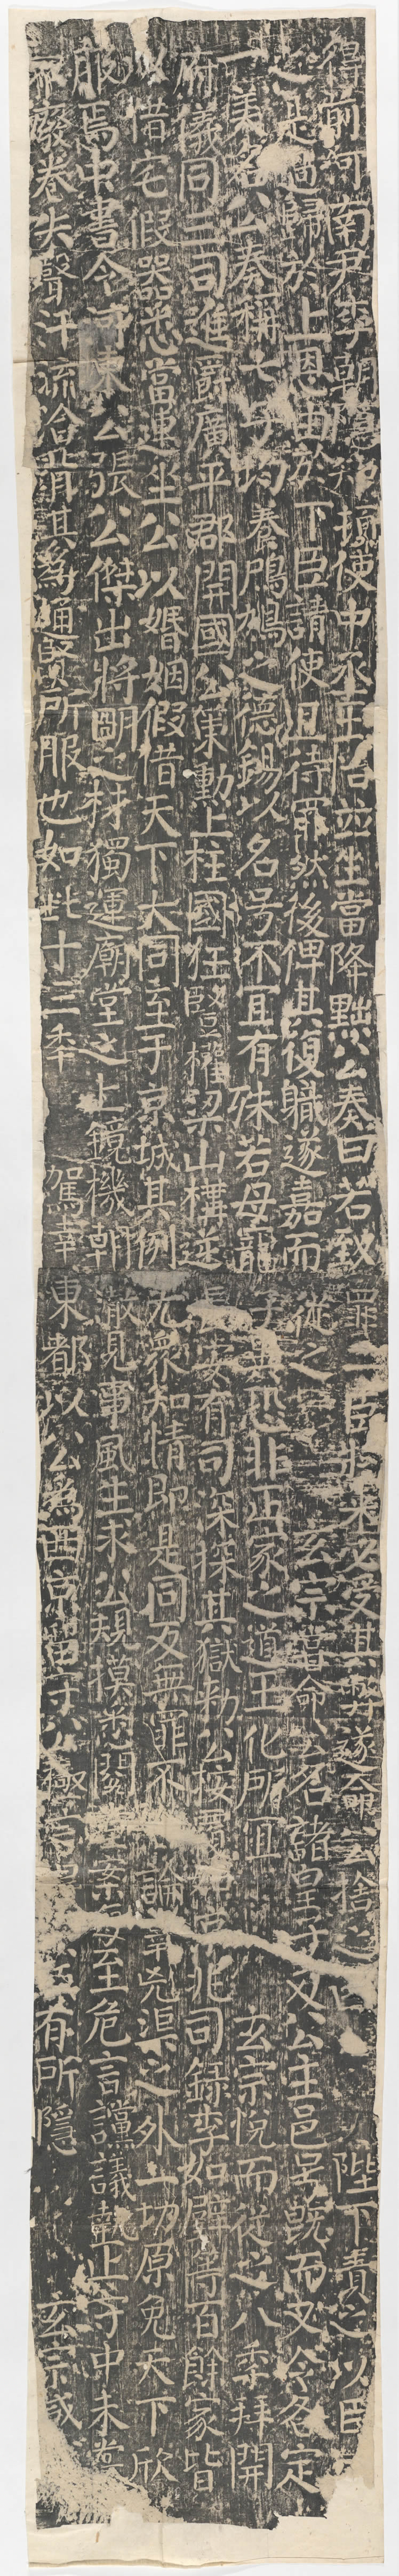 得前河南尹李朝隱知頓使中丞王怡並坐當降黜公奏曰若致罪二臣將來必受其弊遂命公捨之陛下責之以臣
之是過歸於上恩由於下臣請使且待罪然後俾其復職遂嘉而從之玄宗嘗命公名諸皇子及公主邑号既而又令名定
一美名公奏稱七子均養鳲鳩之德錫以名号不宜有殊若母寵子異恐非正家之道王化所宜玄宗悅而從之八年拜開
府儀同三司進爵廣平郡開國公策勳上柱國狂豎權梁山構逆長安有司深探其獄勑公按覆北司錄李如璧等百餘家皆
以借宅假器悉當連坐公以婚姻假借天下大同至于京城其例尤衆知情即是同反無罪不論辜兇渠之外一切原免天下欣
服焉中書令河東公張公傑出將明之材獨運廟堂之上鏡機朝徹見事風生求公規模悉案每至危言讜議執正于中未嘗
不廢卷失聲汗流洽背其為通賢所服也如此十二年駕幸東都以公為西京留守公極言有所隱玄宗或